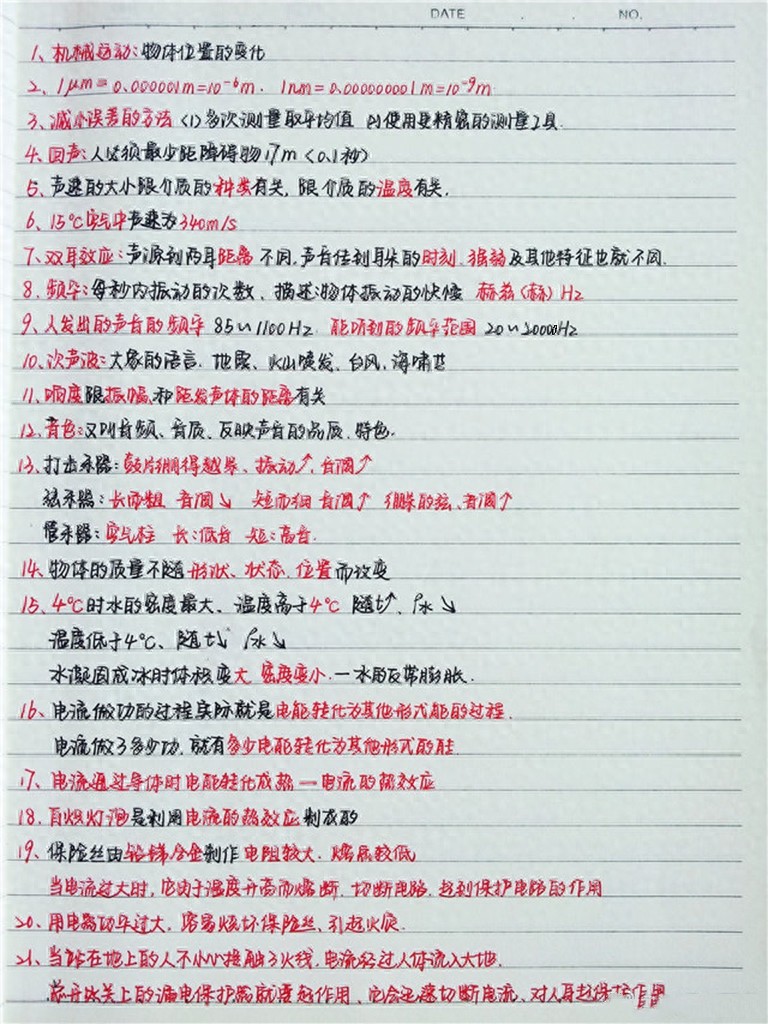 DATE . . NO.
1、机械运动:物体位置的变化
2、1μm=0.000001m=10⁻⁶m. 1nm=0.000000001m=10⁻⁹m
3、减小误差的方法 (1)多次测量取平均值 (2)使用更精密的测量工具.
4、回声:人必须最少距障碍物17m (0.1秒)
5、声速的大小跟介质的种类有关, 跟介质的温度有关.
6、15℃空气中声速为340m/s
7、双耳效应:声源到两耳距离不同,声音传到耳朵的时刻、强弱及其他特征也就不同.
8、频率:每秒内振动的次数、描述:物体振动的快慢 赫兹(赫) Hz
9、人发出的声音的频率 85~1100Hz 能听到的频率范围 20~20000Hz
10、次声波:大象的语言、地震、火山喷发、台风、海啸
11、响度跟振幅、和距发声体的距离有关
12、音色:又叫音频、音质、反映声音的品质、特色.
13、打击乐器:鼓片绷得越紧、振动↑、音调↑
弦乐器:长而粗 音调↘ 短而细 音调↑ 绷紧的弦、音调↑
管乐器:空气柱 长:低音 短:高音.
14、物体的质量不随形状、状态、位置而改变
15、4℃时水的密度最大、温度高于4℃ 随t↑、ρ水↘
温度低于4℃、随t↘ ρ水↘
水凝固成冰时体积变大 密度变小.—水的反常膨胀.
16、电流做功的过程实际就是电能转化为其他形式能的过程.
电流做了多少功,就有多少电能转化为其他形式的能
17、电流通过导体时电能转化成热—电流的热效应
18、白炽灯泡是利用电流的热效应制成的
19、保险丝由铅锑合金制作 电阻较大、熔点较低
当电流过大时,它由于温度升高而熔断,切断电路,起到保护电路的作用
20、用电器功率过大,容易烧坏保险丝、引起火灾.
21、当站在地上的人不小心接触了火线,电流经过人体流入大地.
总开关上的漏电保护器就要起作用、它会迅速切断电流、对人身起保护作用